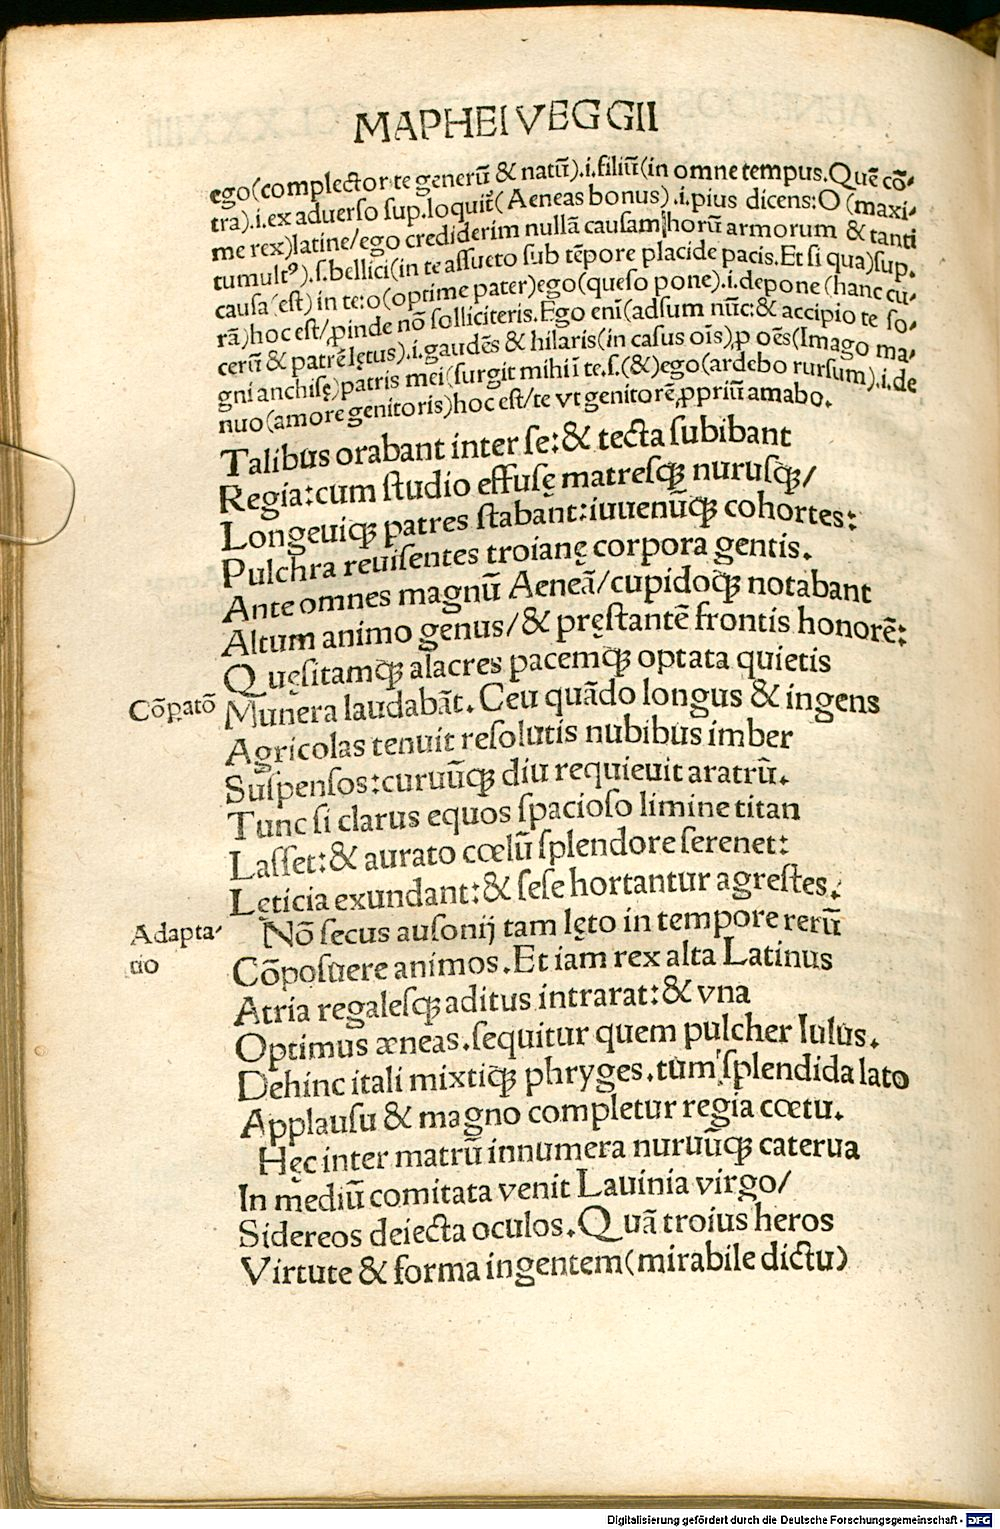 MAPHEI VEGGII
ego(complector te generū & natū).i.filiū(in omne tempus.Quē cō-
tra).i.ex aduerſo ſup.loquit̄(Aeneas bonus).i.pius dicens:O (maxi-
me rex)latine/ego crediderim nullā cauſam|horū armorum & tanti
tumultꝰ).ſ.bellici(in te aſſueto ſub tēpore placide pacis.Et ſi qua)ſup.
cauſa(eſt) in te:o(optime pater)ego(queſo pone).i.depone(hanc cu-
rā)hoc eſt/ꝓinde nō ſolliciteris.Ego eni(adſum nūc:& accipio te ſo-
cerū & patrē lętus).i.gaudēs & hilaris(in caſus oīs),ꝑ oēs(Imago ma-
gni anchiſę)patris mei(ſurgit mihi ī te.ſ.(&)ego(ardebo rurſum).i.de
nuo(amore genitoris)hoc eſt/te vt genitorē ꝓpriū amabo.
Talibus orabant inter ſe:& tecta ſubibant
Regia:cum ſtudio effuſę matreſqꝫ nuruſqꝫ/
Longeuiqꝫ patres ſtabant:iuuenūqꝫ cohortes:
Pulchra reuiſentes troianę corpora gentis.
Ante omnes magnū Aeneā/cupidoqꝫ notabant
Altum animo genus/& pręſtantē frontis honorē:
Quęſitamqꝫ alacres pacemqꝫ optata quietis
Cōpatō
Munera laudabāt.Ceu quādo longus & ingens
Agricolas tenuit reſolutis nubibus imber
Suſpenſos:curuūqꝫ diu requieuit aratrū.
Tunc ſi clarus equos ſpacioſo limine titan
Laſſet:& aurato cœlū ſplendore ſerenet:
Lęticia exundant:& ſeſe hortantur agreſtes.
Adapta-
tio
Nō ſecus auſonij tam lęto in tempore rerū
Cōpoſuere animos.Et iam rex alta Latinus
Atria regaleſqꝫ aditus intrarat:& vna
Optimus æneas.ſequitur quem pulcher Iulus.
Dehinc itali mixtiqꝫ phryges.tum ſplendida lato
Applauſu & magno completur regia cœtu.
Hęc inter matrū innumera nuruūqꝫ caterua
In mediū comitata venit Lauinia virgo/
Sidereos deiecta oculos.Quā troius heros
Virtute & forma ingentem(mirabile dictu)
Digitalisierung gefördert durch die Deutsche Forschungsgemeinschaft - DFG